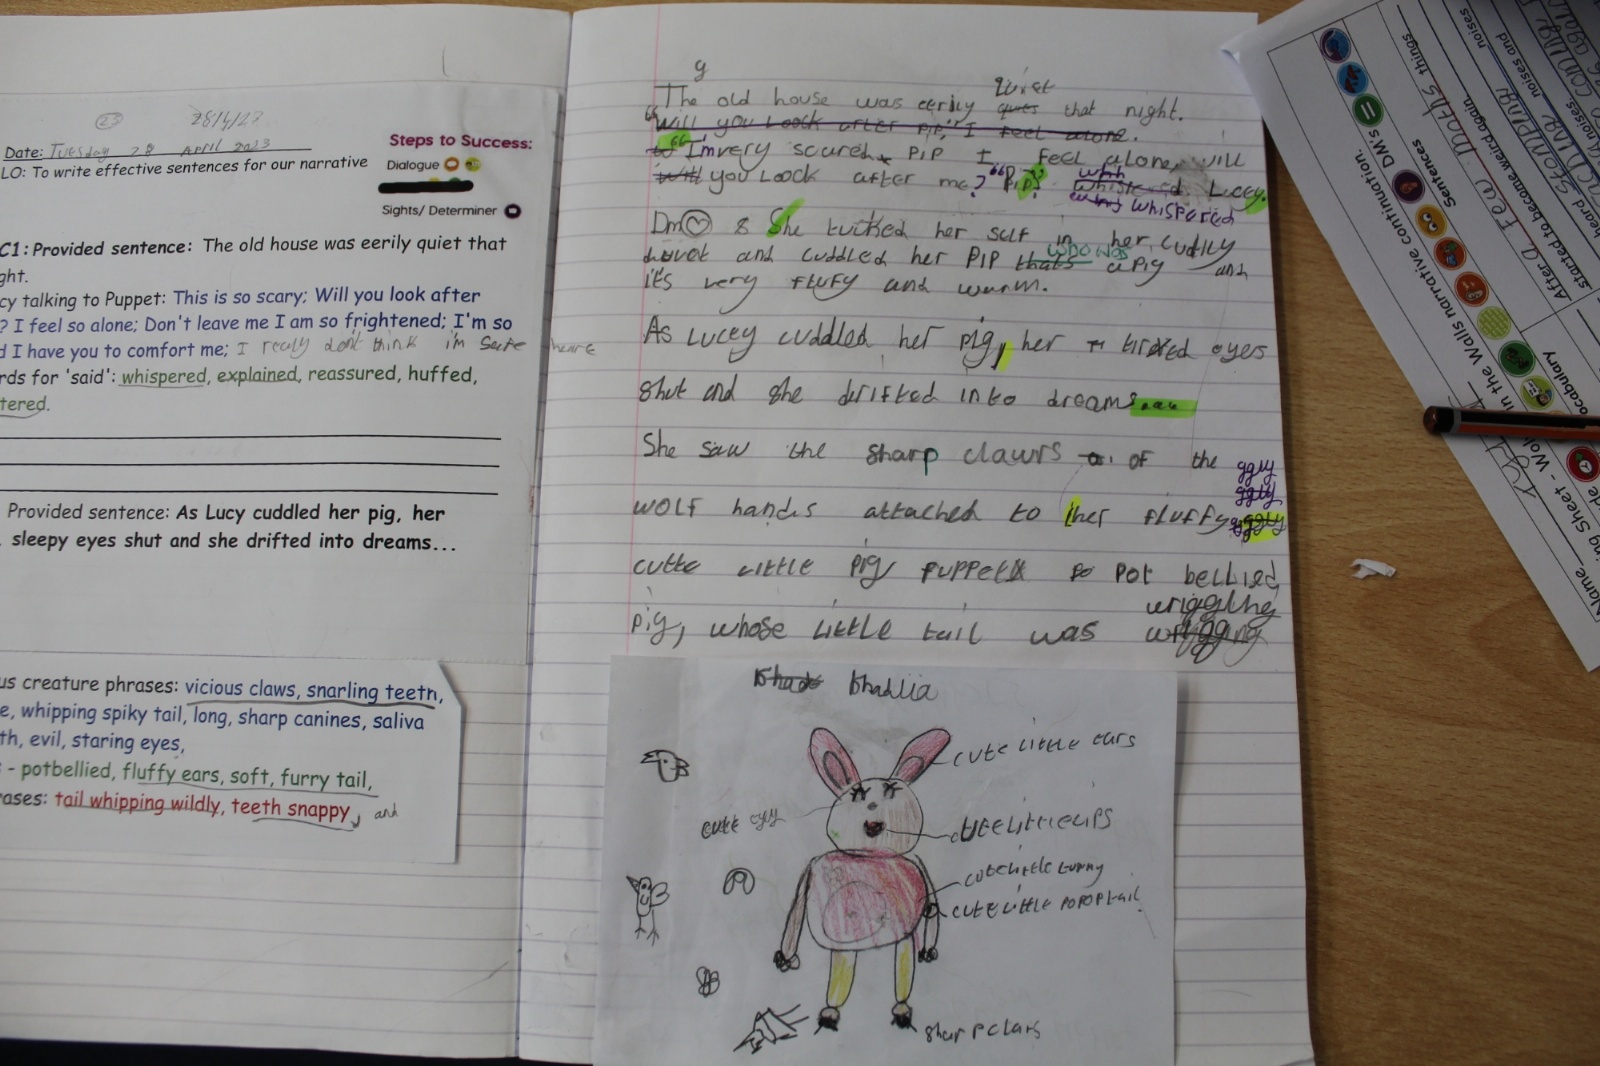 23
28/4/23
Date: Tuesday 28 April 2023
LO: To write effective sentences for our narrative
Steps to Success:
Dialogue
Sights/ Determiner
C1: Provided sentence: The old house was eerily quiet that
ght.
cy talking to Puppet: This is so scary; Will you look after
? I feel so alone; Don't leave me I am so frightened; I'm so
d I have you to comfort me; I really don't think i'm safe here
rds for 'said': whispered, explained, reassured, huffed,
tered.
Provided sentence: As Lucy cuddled her pig, her
sleepy eyes shut and she drifted into dreams...
us creature phrases: vicious claws, snarling teeth,
e, whipping spiky tail, long, sharp canines, saliva
th, evil, staring eyes,
- potbellied, fluffy ears, soft, furry tail,
ases: tail whipping wildly, teeth snappy, and
g
quiet
The old house was eerily ques that night.
"Will you Loock after PiP," I feel alone.
"I'm very scured. PiP I feel alone, will
you Loock after me? "PiP" whispered Lucey.
whispered
DM 8 She tucked her self in her cudily
duvet and cuddled her PIP thats who was a pig and
it's very flufy and wurm.
As Lucey cuddled her pig, her tired eyes
shut and she drifted into dreams...
She saw the sharp clawrs of the
ggly
WOLF hands attached to her fluffy
cutte Little pig puppet pot bellied
wriggling
pig, whose little tail was
bhadlia
cute little ears
cutte eyes
cute little lips
cute little tummy
cute little popop tail
sharp clars
in the Walls narrative continuation.
DM's
Sentences
After a few moths things
started to become weird again. noises
heard stomping noises and
Name